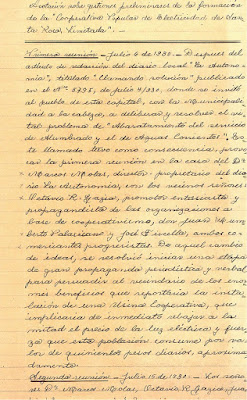 gestiones preliminares de la formación
de la "Cooperativa Popular de Electricidad de San-
ta Rosa, Limitada".
Primera reunión - Julio 6 de 1930 - Después del
artículo de redacción del diario local "La Autono-
mía", titulado "Llamando solución" publicado
en el nº 5395, de julio 4/930, donde se invitó
al pueblo de esta capital, con la Municipali-
dad a la cabeza, a deliberar y resolver el vi-
tal problema de "abaratamiento del servicio
de Alumbrado y el de Aguas Corrientes". Es-
te llamado tuvo como consecuencia, provo-
car la primera reunión en la casa del Dr
Marcos Molas, director propietario del dia-
rio La Autonomía, con los vecinos señores
Octavio R. Gazia, promotor entusiasta y
propagandista de las organizaciones a
base de cooperativismo, don Juan Hum-
berto Palasciano y José Fiorello, ambos co-
merciantes progresistas. De aquel cambio
de ideas, se resolvió iniciar una etapa
de gran propaganda periodística y verbal
para persuadir al vecindario de los enor-
mes beneficios que reportaría la insta-
lación de una Usina Cooperativa, que
implicaría de inmediato abajar a la
mitad el precio de la luz eléctrica y fuer-
za que esta población consume por va-
lor de quinientos pesos diarios, aproxima-
damente.
Segunda reunión - Julio 15 de 1930 - Los seño-
res Dr Marcos Molas, Octavio R. Gazia, Juan